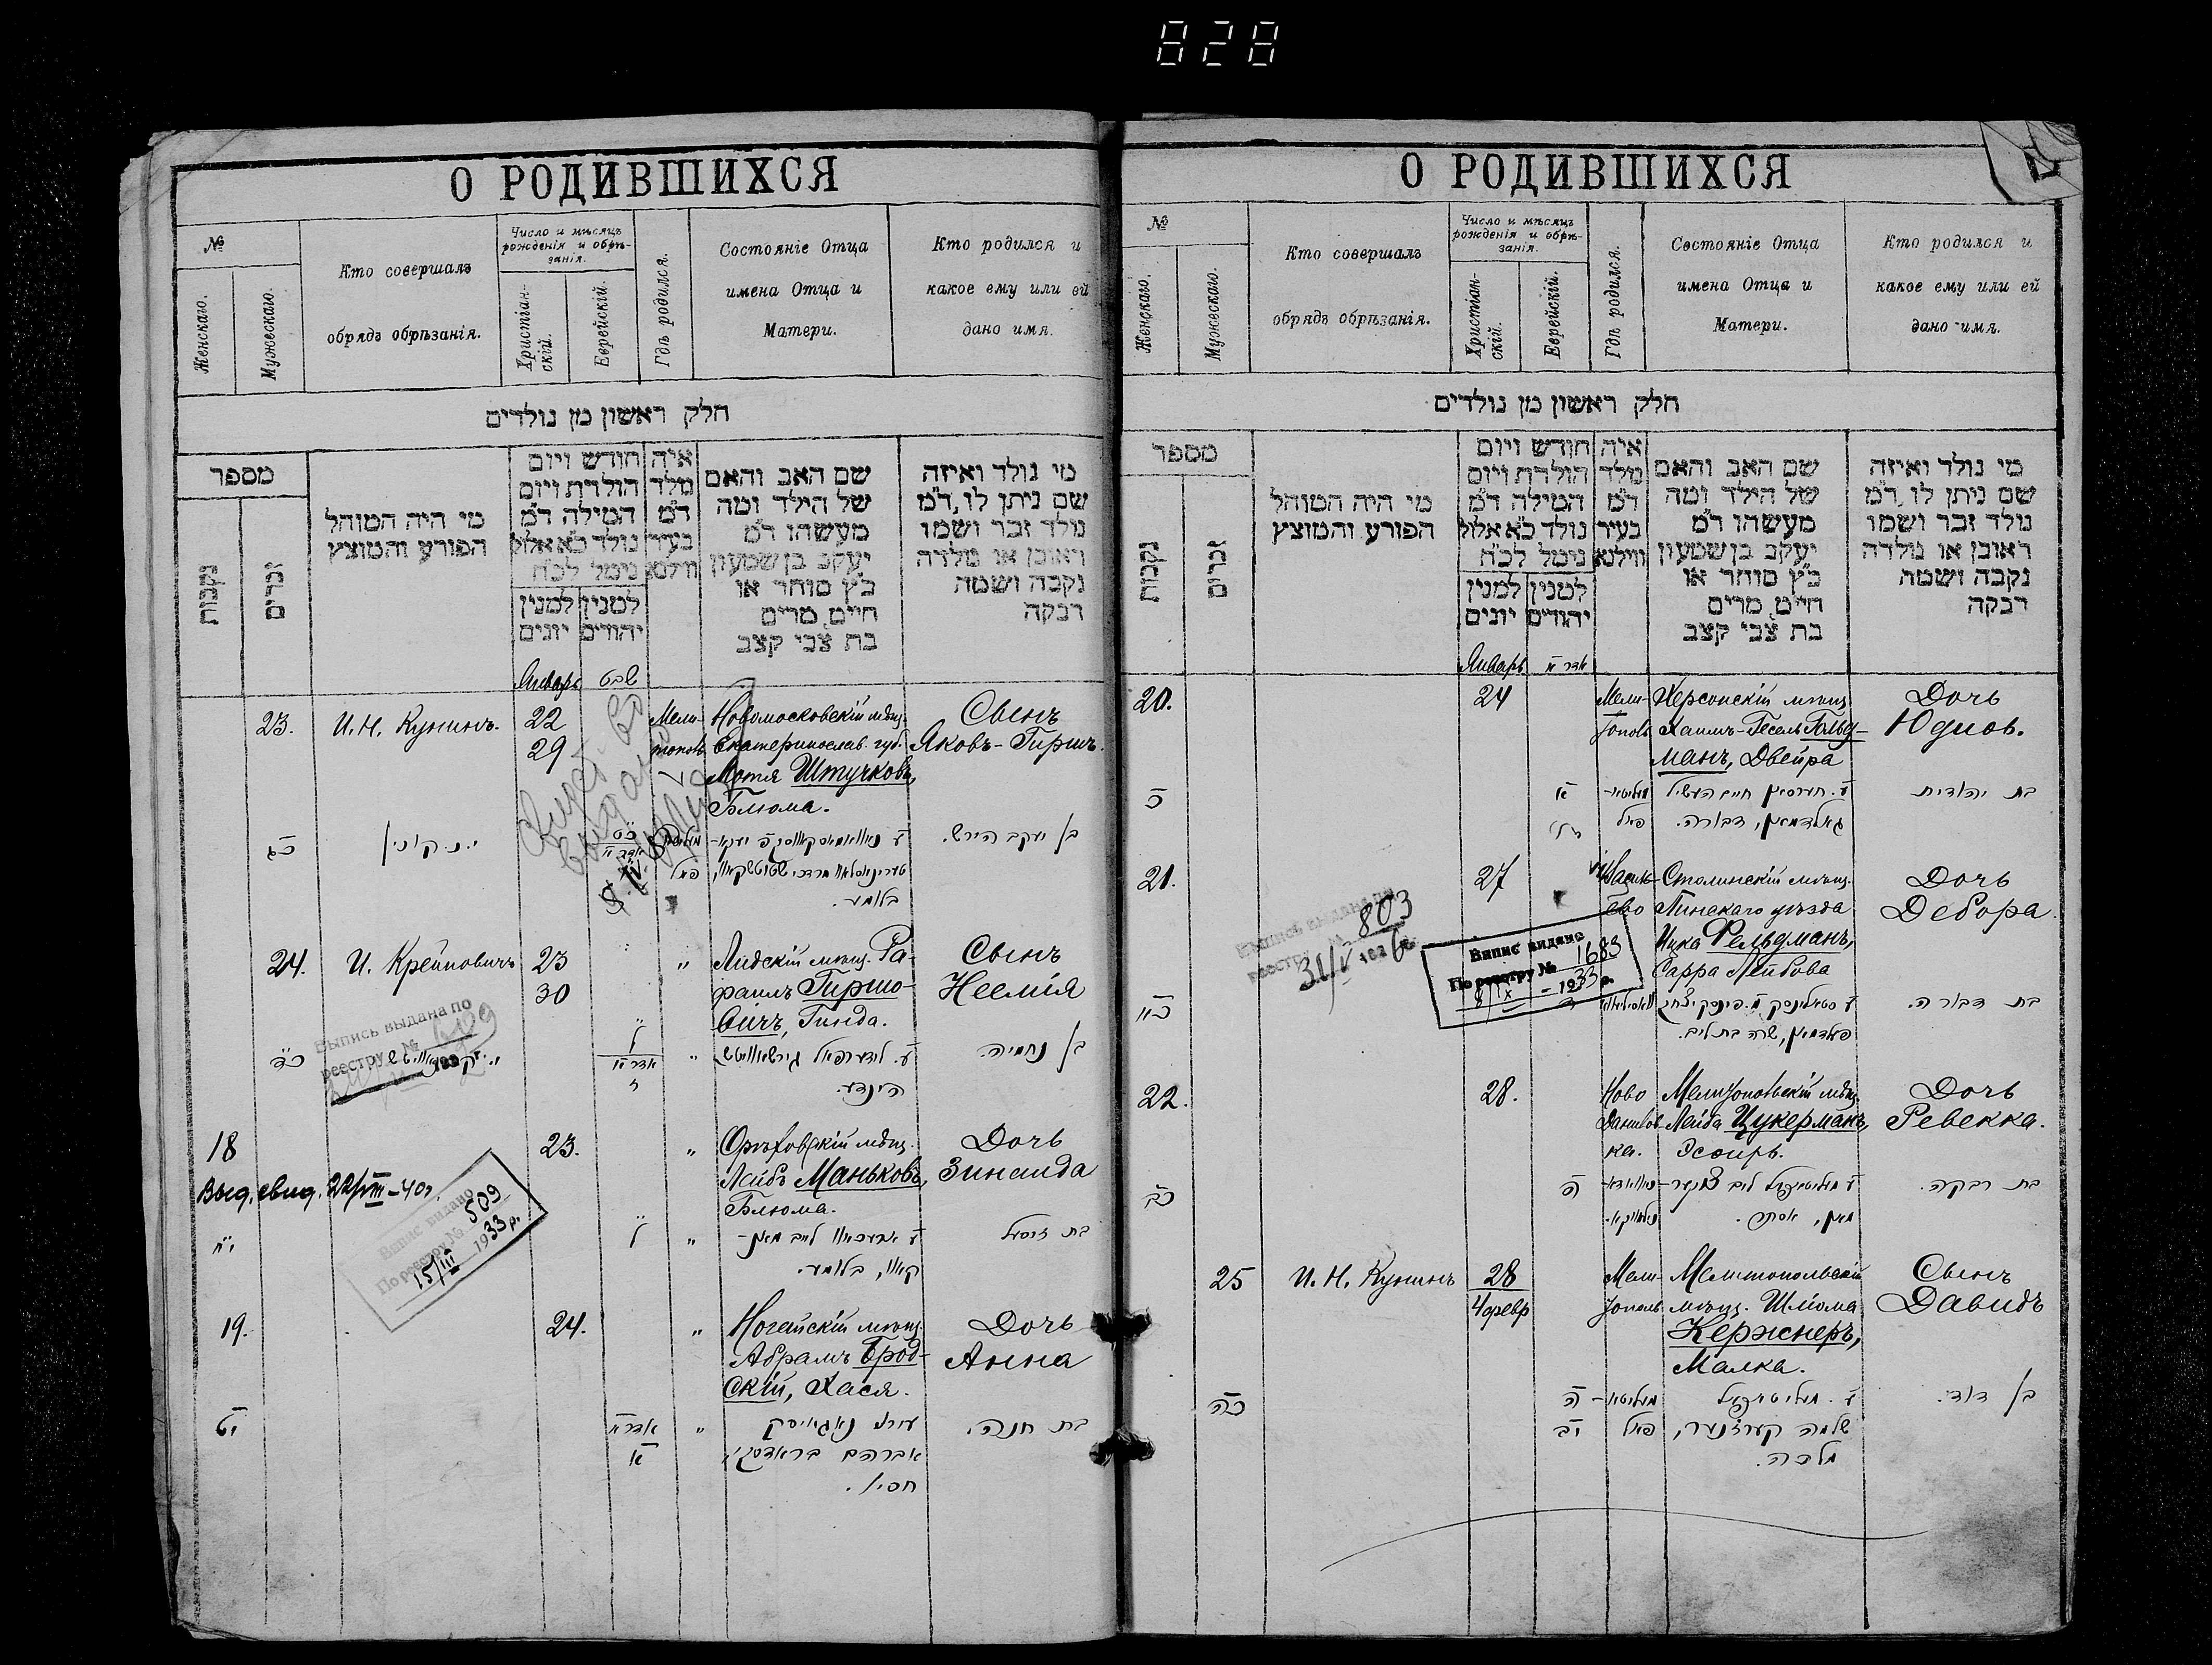 828
О РОДИВШИХСЯ
№
Женскаго.
Мужескаго.
Кто совершалъ
обрядъ обрѣзанія.
Число и мѣсяцъ
рожденія и обрѣ-
занія.
Христіан-
скій.
Еврейскій.
Гдѣ родился.
Состояніе Отца
имена Отца и
Матери.
Кто родился и
какое ему или ей
дано имя.
חלק ראשון מן נולדים
מספר
נקבות
זכרים
מי היה המוהל
הפורע והמוצץ
חודש ויום
הולדת ויום
המילה ד״מ
נולד כ״א אלול
נימל לכ״ח
למנין יהודים
למנין יונים
איה
מלד
ד״מ
בעיר
ווילנא
שם האב והאם
של הילד ומה
מעשהו ד״מ
יעקב בן שמעון
כ״ץ סוחר או
חייט, מרים
בת צבי קצב
מי נולד ואיזה
שם ניתן לו, ד״מ
נולד זכר ושמו
ראובן או נולדה
נקבה ושמה
רבקה
Январь
שבט
23.
И. Н. Кунинъ.
22
29
Мели-
тополь
Новомосковскій мѣщ.
Екатеринослав. губ.
Мотя Штучковъ,
Блюма.
Сынъ
Яковъ-Гиршъ.
כג
י. נ. קונין
בן יעקב הירש.
24.
И. Крейновичъ
23
30
"
Лидскій мѣщ. Ра-
фаилъ Гиршо-
вичъ, Гинда.
Сынъ
Неемія
Выпись выдана по
реестру №
כד
אדר א
בן נחמיה.
הינדע.
18
23.
"
Орѣховскій мѣщ.
Лейбъ Маньковъ,
Блюма.
Дочь
Зинаида
Выд. свид. 22/VIII-40г.
Випис видано
По реєстру № 509
15/III 1933 р.
יח
ל
"
קאוו, בלומע.
19.
24.
"
Ногайскій мѣщ.
Абрамъ Брод-
скій, Хася.
Дочь
Анна
יט
אדר א
א
"
אברהם בראדסקי,
חסיא.
בת חנה.
О РОДИВШИХСЯ
№
Женскаго.
Мужескаго.
Кто совершалъ
обрядъ обрѣзанія.
Число и мѣсяцъ
рожденія и обрѣ-
занія.
Христіан-
скій.
Еврейскій.
Гдѣ родился.
Состояніе Отца
имена Отца и
Матери.
Кто родился и
какое ему или ей
дано имя.
חלק ראשון מן נולדים
מספר
נקבות
זכרים
מי היה המוהל
הפורע והמוצץ
חודש ויום
הולדת ויום
המילה ד״מ
נולד כ״א אלול
נימל לכ״ח
למנין יהודים
למנין יונים
איה
מלד
ד״מ
בעיר
ווילנא
שם האב והאם
של הילד ומה
מעשהו ד״מ
יעקב בן שמעון
כ״ץ סוחר או
חייט, מרים
בת צבי קצב
מי נולד ואיזה
שם ניתן לו, ד״מ
נולד זכר ושמו
ראובן או נולדה
נקבה ושמה
רבקה
Январь
אדר א
20.
24
Мели-
тополь
Херсонскій мѣщ.
Хаимъ-Гесель Гольд-
манъ, Двейра
Дочь
Юдиѳь.
כ
א
מעליטא-
פאל
גאלדמאן, דבורה.
בת יהודית
21.
27
Василь-
ево
Столинскій мѣщ.
Пинскаго уѣзда
Ицка Фельдманъ,
Сарра Лейбова
Дочь
Дебора.
Выпись выдана по
реестру № 803
31/V 1926 г.
Випис видано
По реєстру № 1683
8/X - 1933 р.
כא
פעלדמאן, שרה בת ליב.
בת דבורה.
22.
28.
Ново
Данилов-
ка.
Мелитопольскій мѣщ.
Лейба Цукерманъ,
Эсѳирь.
Дочь
Ревекка.
כב
ה
מאן, אסתר.
בת רבקה.
25
И. Н. Кунинъ
28
4 февр
Мели-
тополь
Мелитопольскій
мѣщ. Шлиома
Кержнеръ,
Малка.
Сынъ
Давидъ
כה
ה
יב
מעליטא-
פאל
שלמה קערזנער,
מלכה.
בן דוד.